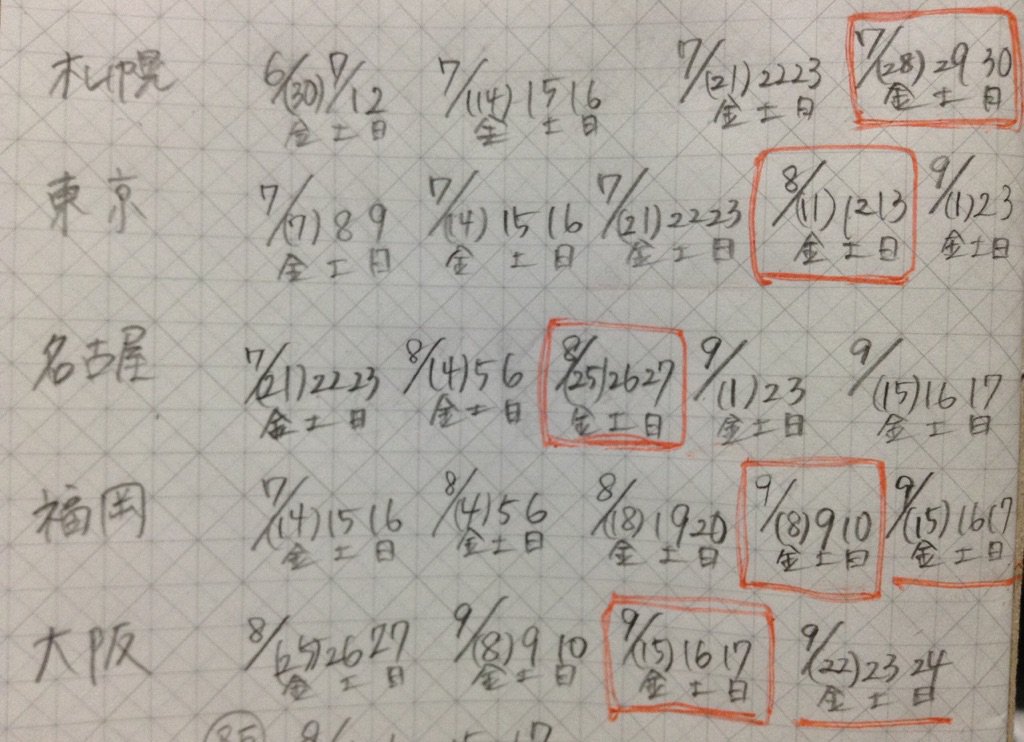 札幌 6/(30) 7/1 2 7/(14) 15 16 7/(21) 22 23 7/(28) 29 30
金 土 日 金 土 日 金 土 日 金 土 日
東京 7/(7) 8 9 7/(14) 15 16 7/(21) 22 23 8/(11) 12 13 9/(1) 2 3
金 土 日 金 土 日 金 土 日 金 土 日 金 土 日
名古屋 7/(21) 22 23 8/(4) 5 6 8/(25) 26 27 9/(1) 2 3 9/(15) 16 17
金 土 日 金 土 日 金 土 日 金 土 日 金 土 日
福岡 7/(14) 15 16 8/(4) 5 6 8/(18) 19 20 9/(8) 9 10 9/(15) 16 17
金 土 日 金 土 日 金 土 日 金 土 日 金 土 日
大阪 8/(25) 26 27 9/(8) 9 10 9/(15) 16 17 9/(22) 23 24
金 土 日 金 土 日 金 土 日 金 土 日